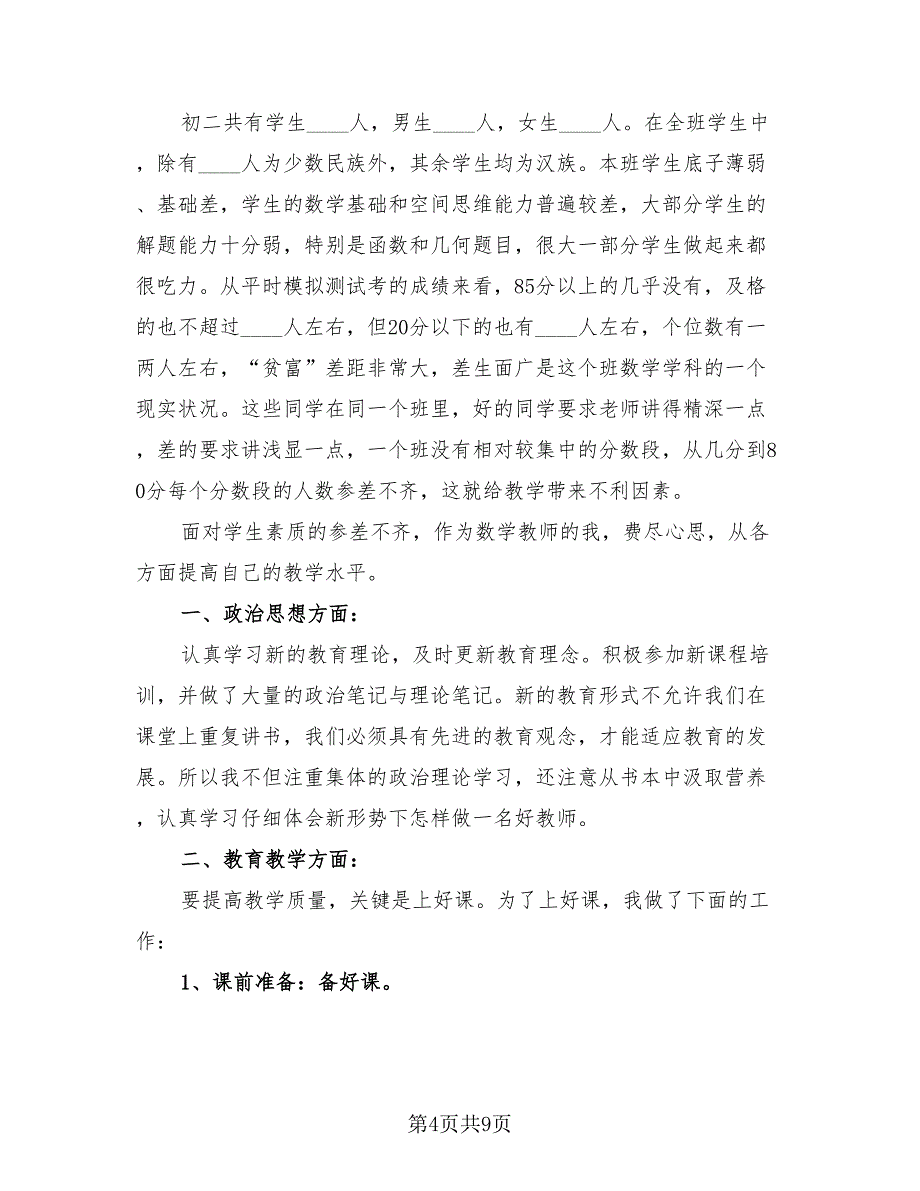 初二共有学生____人，男生____人，女生____人。在全班学生中
，除有____人为少数民族外，其余学生均为汉族。本班学生底子薄弱
、基础差，学生的数学基础和空间思维能力普遍较差，大部分学生的
解题能力十分弱，特别是函数和几何题目，很大一部分学生做起来都
很吃力。从平时模拟测试考的成绩来看，85分以上的几乎没有，及格
的也不超过____人左右，但20分以下的也有____人左右，个位数有一
两人左右，“贫富”差距非常大，差生面广是这个班数学学科的一个
现实状况。这些同学在同一个班里，好的同学要求老师讲得精深一点
，差的要求讲浅显一点，一个班没有相对较集中的分数段，从几分到8
0分每个分数段的人数参差不齐，这就给教学带来不利因素。
面对学生素质的参差不齐，作为数学教师的我，费尽心思，从各
方面提高自己的教学水平。
一、政治思想方面：
认真学习新的教育理论，及时更新教育理念。积极参加新课程培
训，并做了大量的政治笔记与理论笔记。新的教育形式不允许我们在
课堂上重复讲书，我们必须具有先进的教育观念，才能适应教育的发
展。所以我不但注重集体的政治理论学习，还注意从书本中汲取营养
，认真学习仔细体会新形势下怎样做一名好教师。
二、教育教学方面：
要提高教学质量，关键是上好课。为了上好课，我做了下面的工
作：
1、课前准备：备好课。
第4页共9页